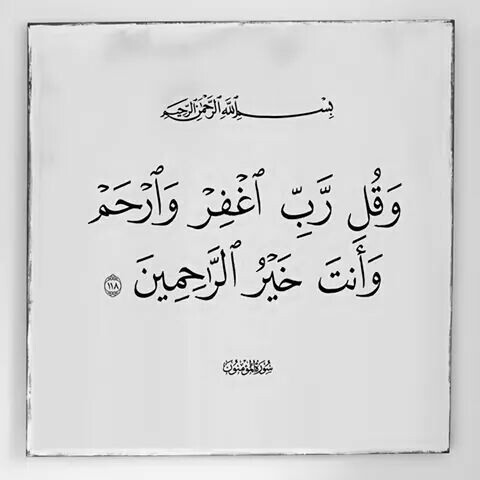 بِسْمِ اللَّهِ الرَّحْمَٰنِ الرَّحِيمِ
وَقُل رَّبِّ ٱغْفِرْ وَٱرْحَمْ
وَأَنتَ خَيْرُ ٱلرَّٰحِمِينَ ١١٨
سُورَةُ المُؤْمِنُون